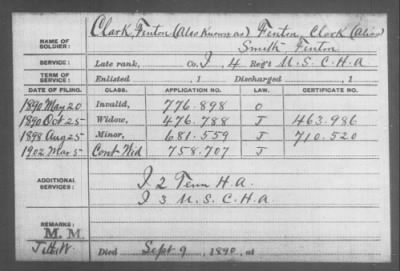 NAME OF SOLDIER: Clark, Fenton (Also Known as) Fenton, Clark (Alias)
Smith Fenton
SERVICE: Late rank, Co. I, 4 Reg't U.S.C.H.A
TERM OF SERVICE: Enlisted , 1 Discharged , 1
DATE OF FILING. CLASS. APPLICATION NO. LAW. CERTIFICATE NO.
1890 May 20 Invalid, 776.898 O
1890 Oct 25 Widow, 476.788 J 463.986
1898 Aug 25 Minor, 681.559 J 710.520
1902 Mar 5 Cont Wid 758.707 J
ADDITIONAL SERVICES: I 2 Tenn H.A.
I 3 U.S.C.H.A
REMARKS: M. M.
Died Sept 9, 1890, at